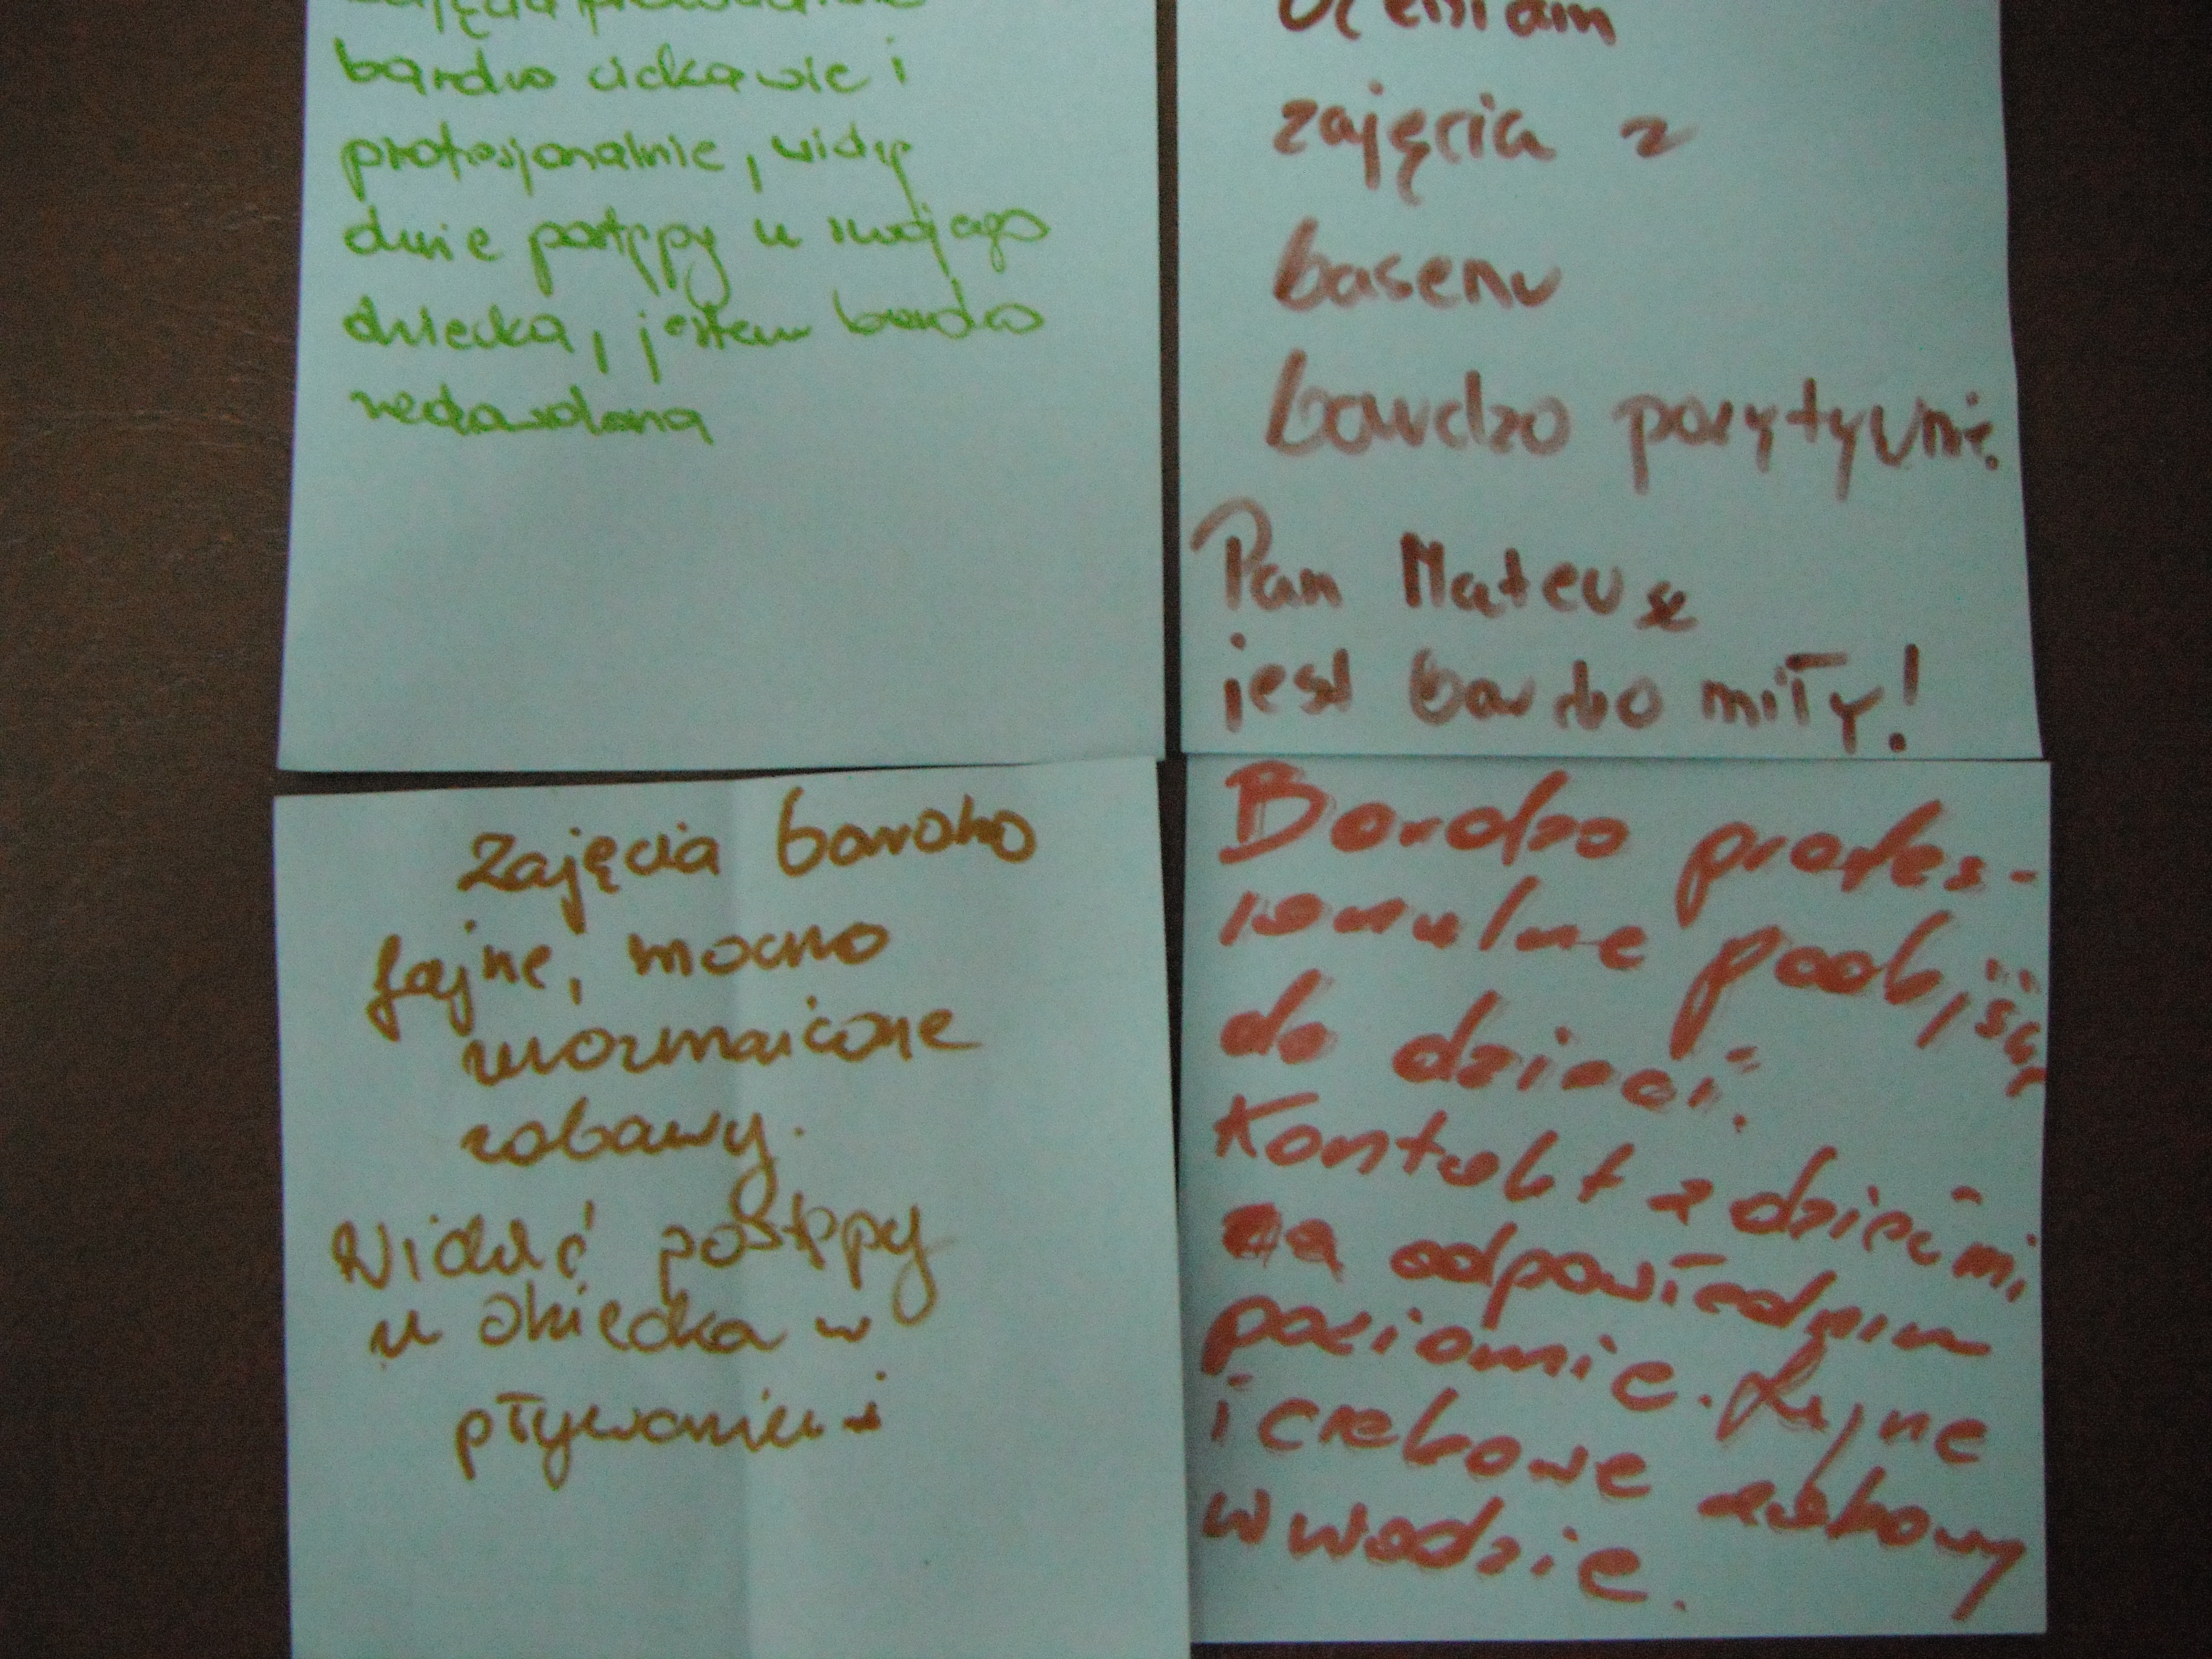 zajęcia prowadzone
bardzo ciekawie i
profesjonalnie, widzę
duże postępy u swojego
dziecka, jestem bardzo
zadowolona
Oceniam
zajęcia z
basenu
bardzo pozytywnie.
Pan Mateusz
jest bardzo miły!
Zajęcia bardzo
fajne, mocno
urozmaicone
zabawy.
Widać postępy
u dziecka w
pływaniu
Bardzo profes-
ionalne podejście
do dzieci.
Kontakt z dziećmi
na odpowiednim
poziomie. Fajne
i ciekawe zabawy
w wodzie.